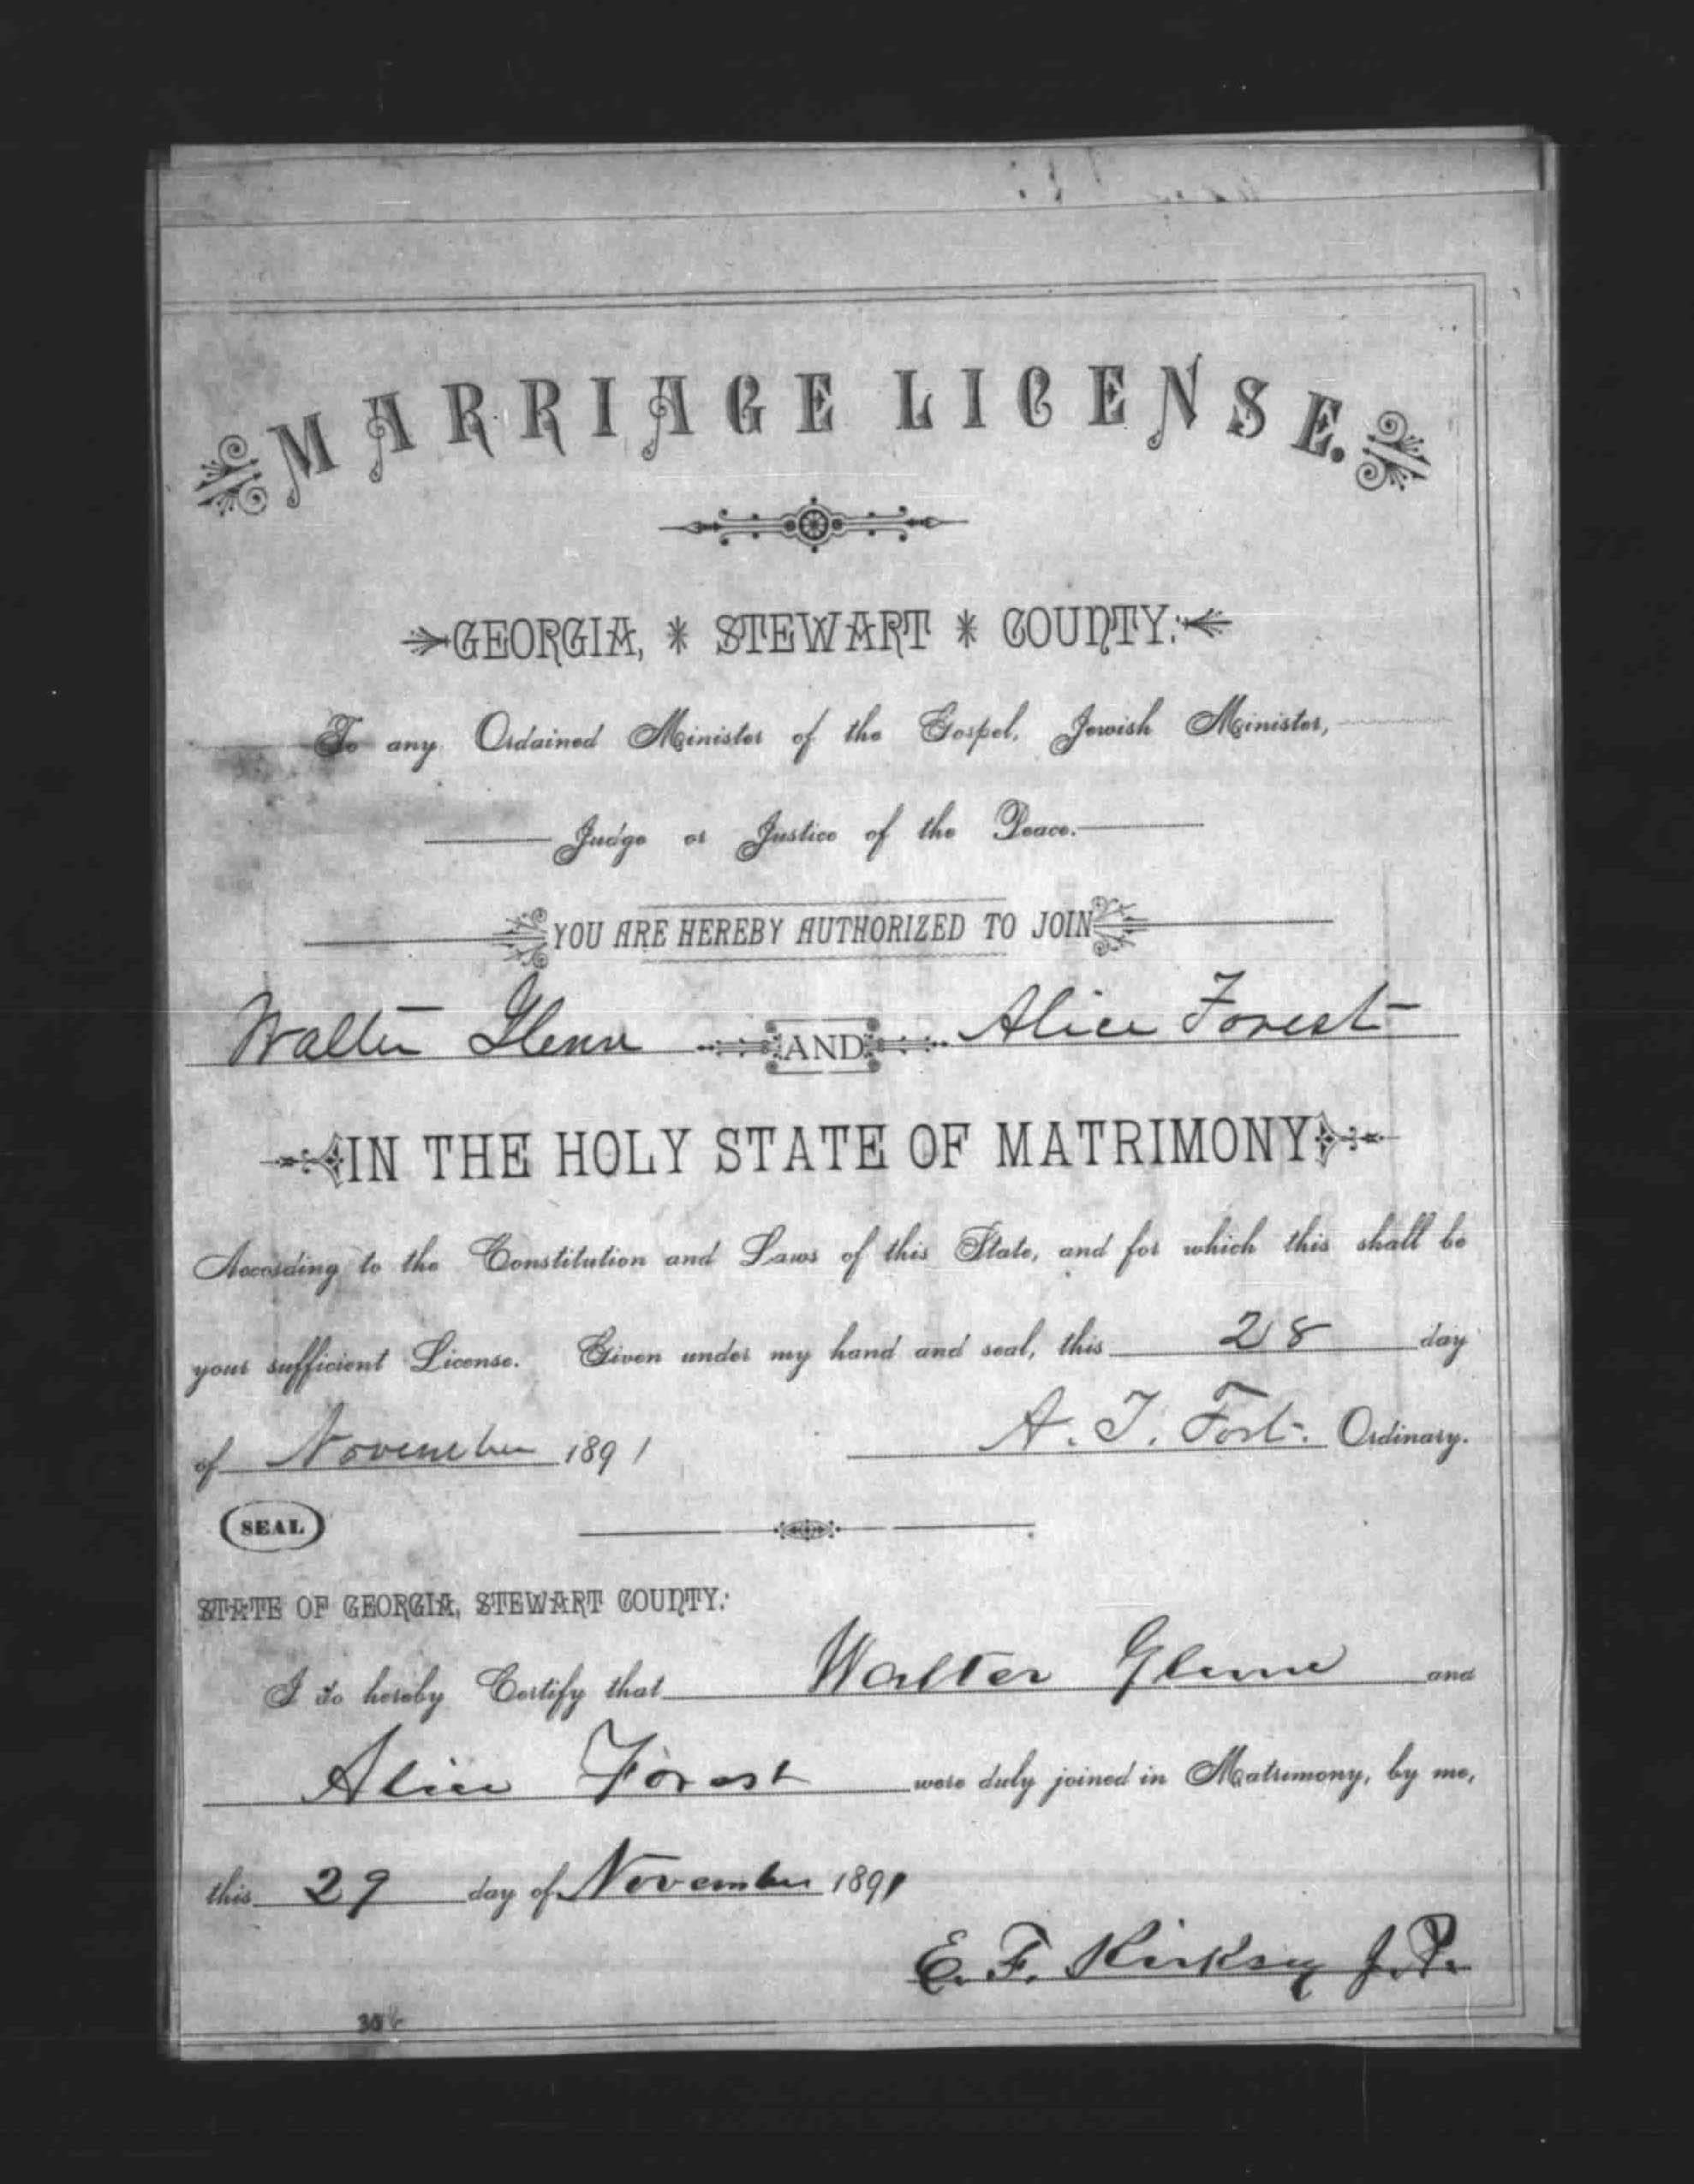 MARRIAGE LICENSE.
GEORGIA, * STEWART * COUNTY:
To any Ordained Minister of the Gospel, Jewish Minister,
Judge or Justice of the Peace.
YOU ARE HEREBY AUTHORIZED TO JOIN
Walter Glenn AND Alice Forest
IN THE HOLY STATE OF MATRIMONY
According to the Constitution and Laws of this State, and for which this shall be
your sufficient License. Given under my hand and seal, this 28 day
of November 1891 A. T. Fort. Ordinary.
SEAL
STATE OF GEORGIA, STEWART COUNTY:
I do hereby Certify that Walter Glenn and
Alice Forest were duly joined in Matrimony, by me,
this 29 day of November 1891
E. F. Kirksey J. P.